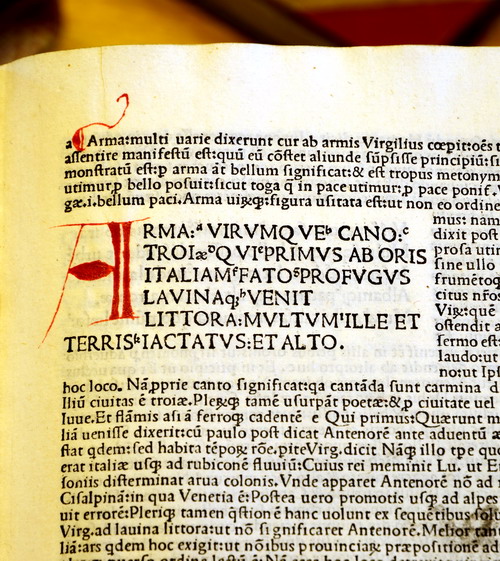 a Arma:multi uarie dixerunt cur ab armis Virgilius cœpit:oēs t
assentire manifestū est:quū eū cōstet aliunde sūpsisse principiū:si
monstratū est:p arma āt bellum significat:& est tropus metonym
utimur,p bello posuit:sicut toga q̄ in pace utimur:p pace ponit.
gæ.i.bellum paci.Arma uiꝝq;:figura usitata est:ut non eo ordine
ARMA:ᵃ VIRVMQVEᵇ CANO:ᶜ
TROIæᵈQVIᵉPRIMVS AB ORIS
ITALIAMᶠFATOᵍPROFVGVS
LAVINAq;ʰVENIT
LITTORA:MVLTVMⁱILLE ET
TERRISᵏIACTATVS:ET ALTO.
mus: nam
dixit post
prosa utin
sine ullo
frumētoq
citus nr̄o
Viꝝ:quē
ostendit a
sermo est
laudo:ut
no:ut Ips
hoc loco. Nā,pprie canto significat:qa cantāda sunt carmina d
Iliū ciuitas ē troiæ.Pleꝝq; tamē usurpāt poetæ:&,p ciuitate uel
Iuue.Et flāmis asiā ferroq; cadentē e Qui primus:Quærunt m
liā uenisse dixerit:cū paulo post dicat Antenorē ante aduentū æ
stat qdem:sed habita tēpoꝝ rōe.piteVirg.dicit Nāq; illo tpe que
erat italiæ usq; ad rubiconē fluuiū:Cuius rei meminit Lu. ut E
soniis disterminat arua colonis.Vnde apparet Antenorē nō ad i
Cisalpinā:in qua Venetia ē:Postea uero promotis usq; ad alpes
uit errorē:Pleriq; tamen q̄stionē hanc uolunt ex sequētibus solu
Virg.ad lauina littora:ut nō significaret Antenorē.Melior tam
liā:ars qdem hoc exigit:ut nōibus prouinciaꝝ præpositionē ad